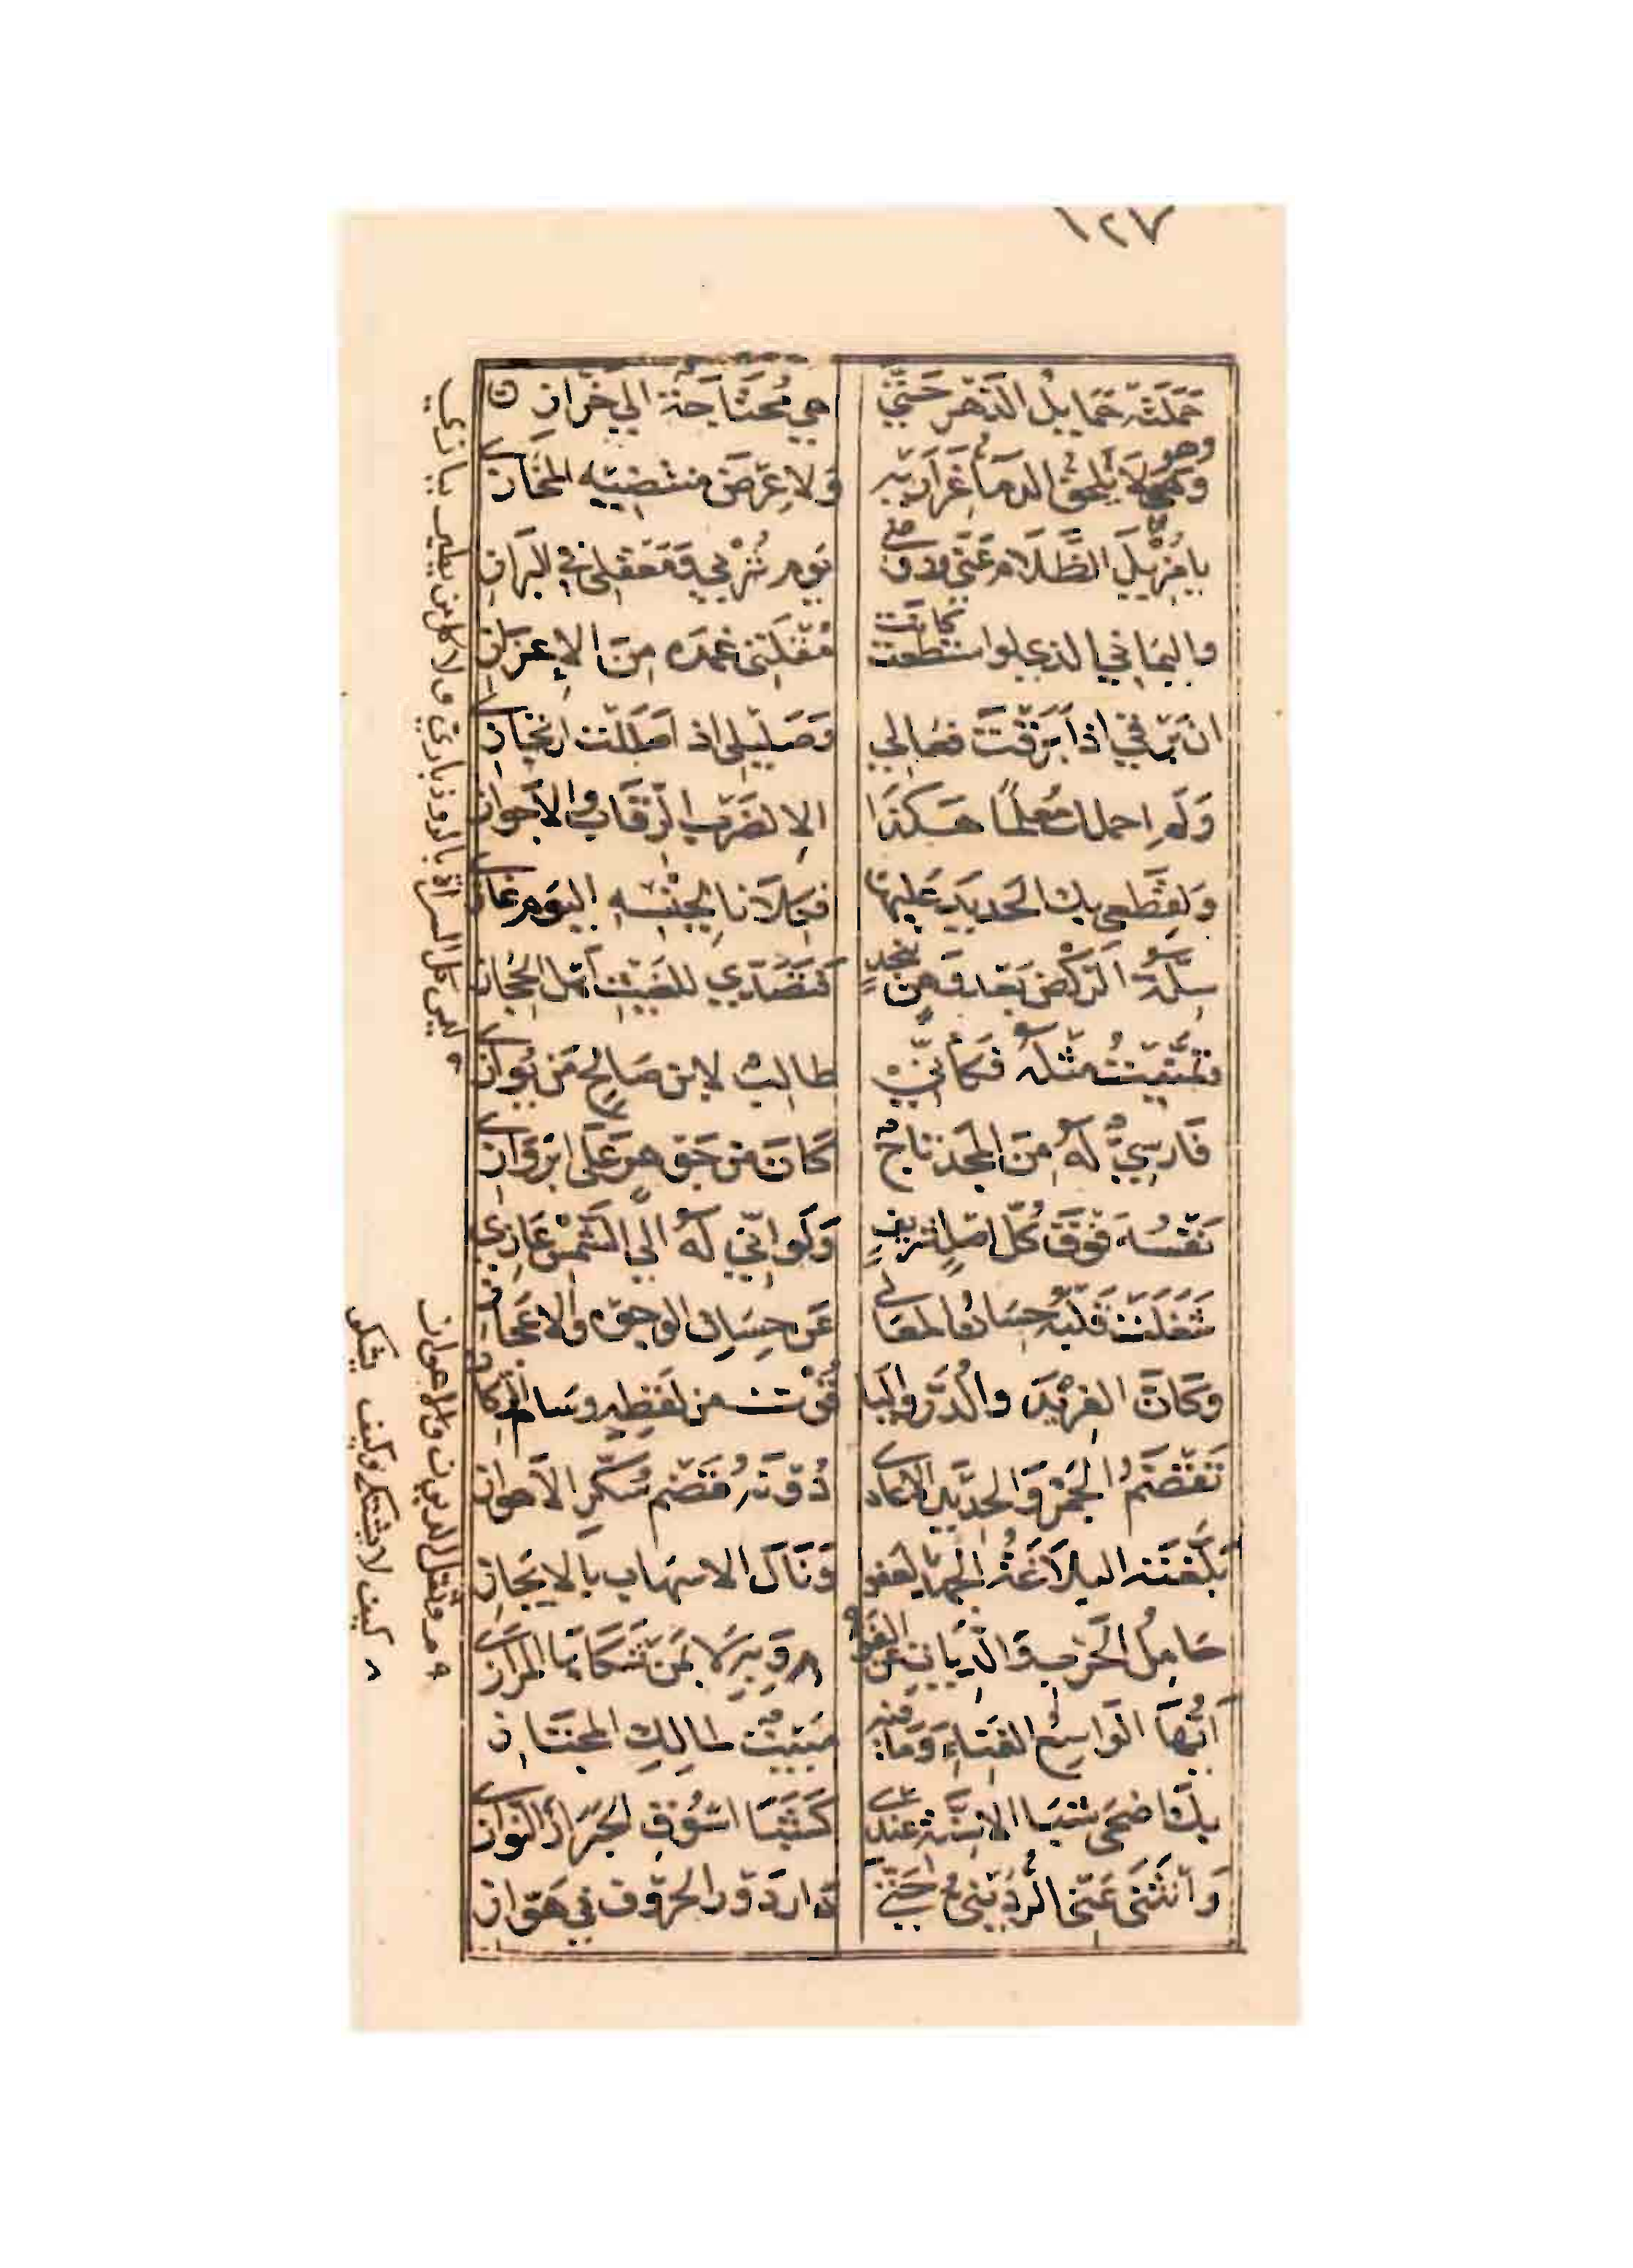 ١٢٧
حَمَلَتْه حَمَايلُ الدَهْرِ حَتّي هي مُحتَاجَةٌ الي خَرّازِ
وهو
وَهو لَا يَلحَقُ الدمَاءُ غَرَارَيْه وَلا عِرْضَ منتضِيَيه المَخَازي
يا مُزِيْلَ الظَّلَامِ عَنّي وروضي يَومَ شُرْبي وَمَعقِلي في البَرَازِ
واليمَاني الذي لواسْتطعت كانت مُقْلَتي غِمدَه مِنَ الاِعزَازِ
ان بَرقي اذا بَرَقْتَ فعَالي وَصَليْلي اذ اصَلَلْتَ ارتجَازِي
وَلَم احملك مُعلمًا هَكذَا الا لضَربِ الرّقَابِ والاَجوازِ
وَلقَطعي بك الحَديدَ عَليْهَا فكِلَانا لِجنْسِهِ اليَومَ غازي
سَلَّهُ الرّكْضُ بَعدَ وَهْنٍ بنجدٍ فتَصَدّي للغَيْثِ اَهل الحِجازِ
وتَمنّيْتُ مثْلَهُ فكَأنّي طالِبٌ لابن صَالحٍ مَن يُوازي
فَارسِيٌّ لَهُ مِنَ المجَد تاجٌ كَانَ من جَوْهرٍ عَلَى ابْرَوَازِ
نَفْسُهُ فَوْقَ كُلّ اصْلٍ شريفٍ وَلَو اَنّي لهُ الي الشَّمْسِ عَازِي
شَغَلَتْ قَلْبَهُ حِسَانُ المعَالي عَن حِسَانِ الوجوه والاعجَازِ
وَكَانَ الفرِيْدَ والدُّرَّ واليَا قُوْتَ من لفظِهِ وسَامَ الرِّكازِ
تَقْضَمُ الجَمْرَ وَالحدَيْدَ الاعَادي دُوْنَهُ قَضْمَ سُكّرِ الاَهوازِ
بَلّغَتْه البلَاغَةُ الجهدَ بالعَفوِ وَنَالَ الاسهَابَ بالايجَازِ
حَامِلُ الحَربِ وَالدِّيَاتِ عَنِ القَومِ وَثِقلِ الدُيونِ والاعوازِ
كيف لا يشتكي وكيف تشكوا وَبه لا بمَنْ شكَاهَا المرَازي
اَيُّها الوَاسِعُ الفِنَاءِ وَمَا فيه مَبيْتٌ لمالِكَ المجتَازِ
بكَ اضحَى شبَا الاسِنَّةِ عندي كَشَبَا اسْوُقِ الجَرَادِ النوازي
وَانثَنَى عَنّي الرُّدَيْنِيُّ حَتّي دَارَ دَوْرَ الحرُوفِ في هَوّازِ
ليس كل السراة بالروذباري ولا كل من يطير ببازي